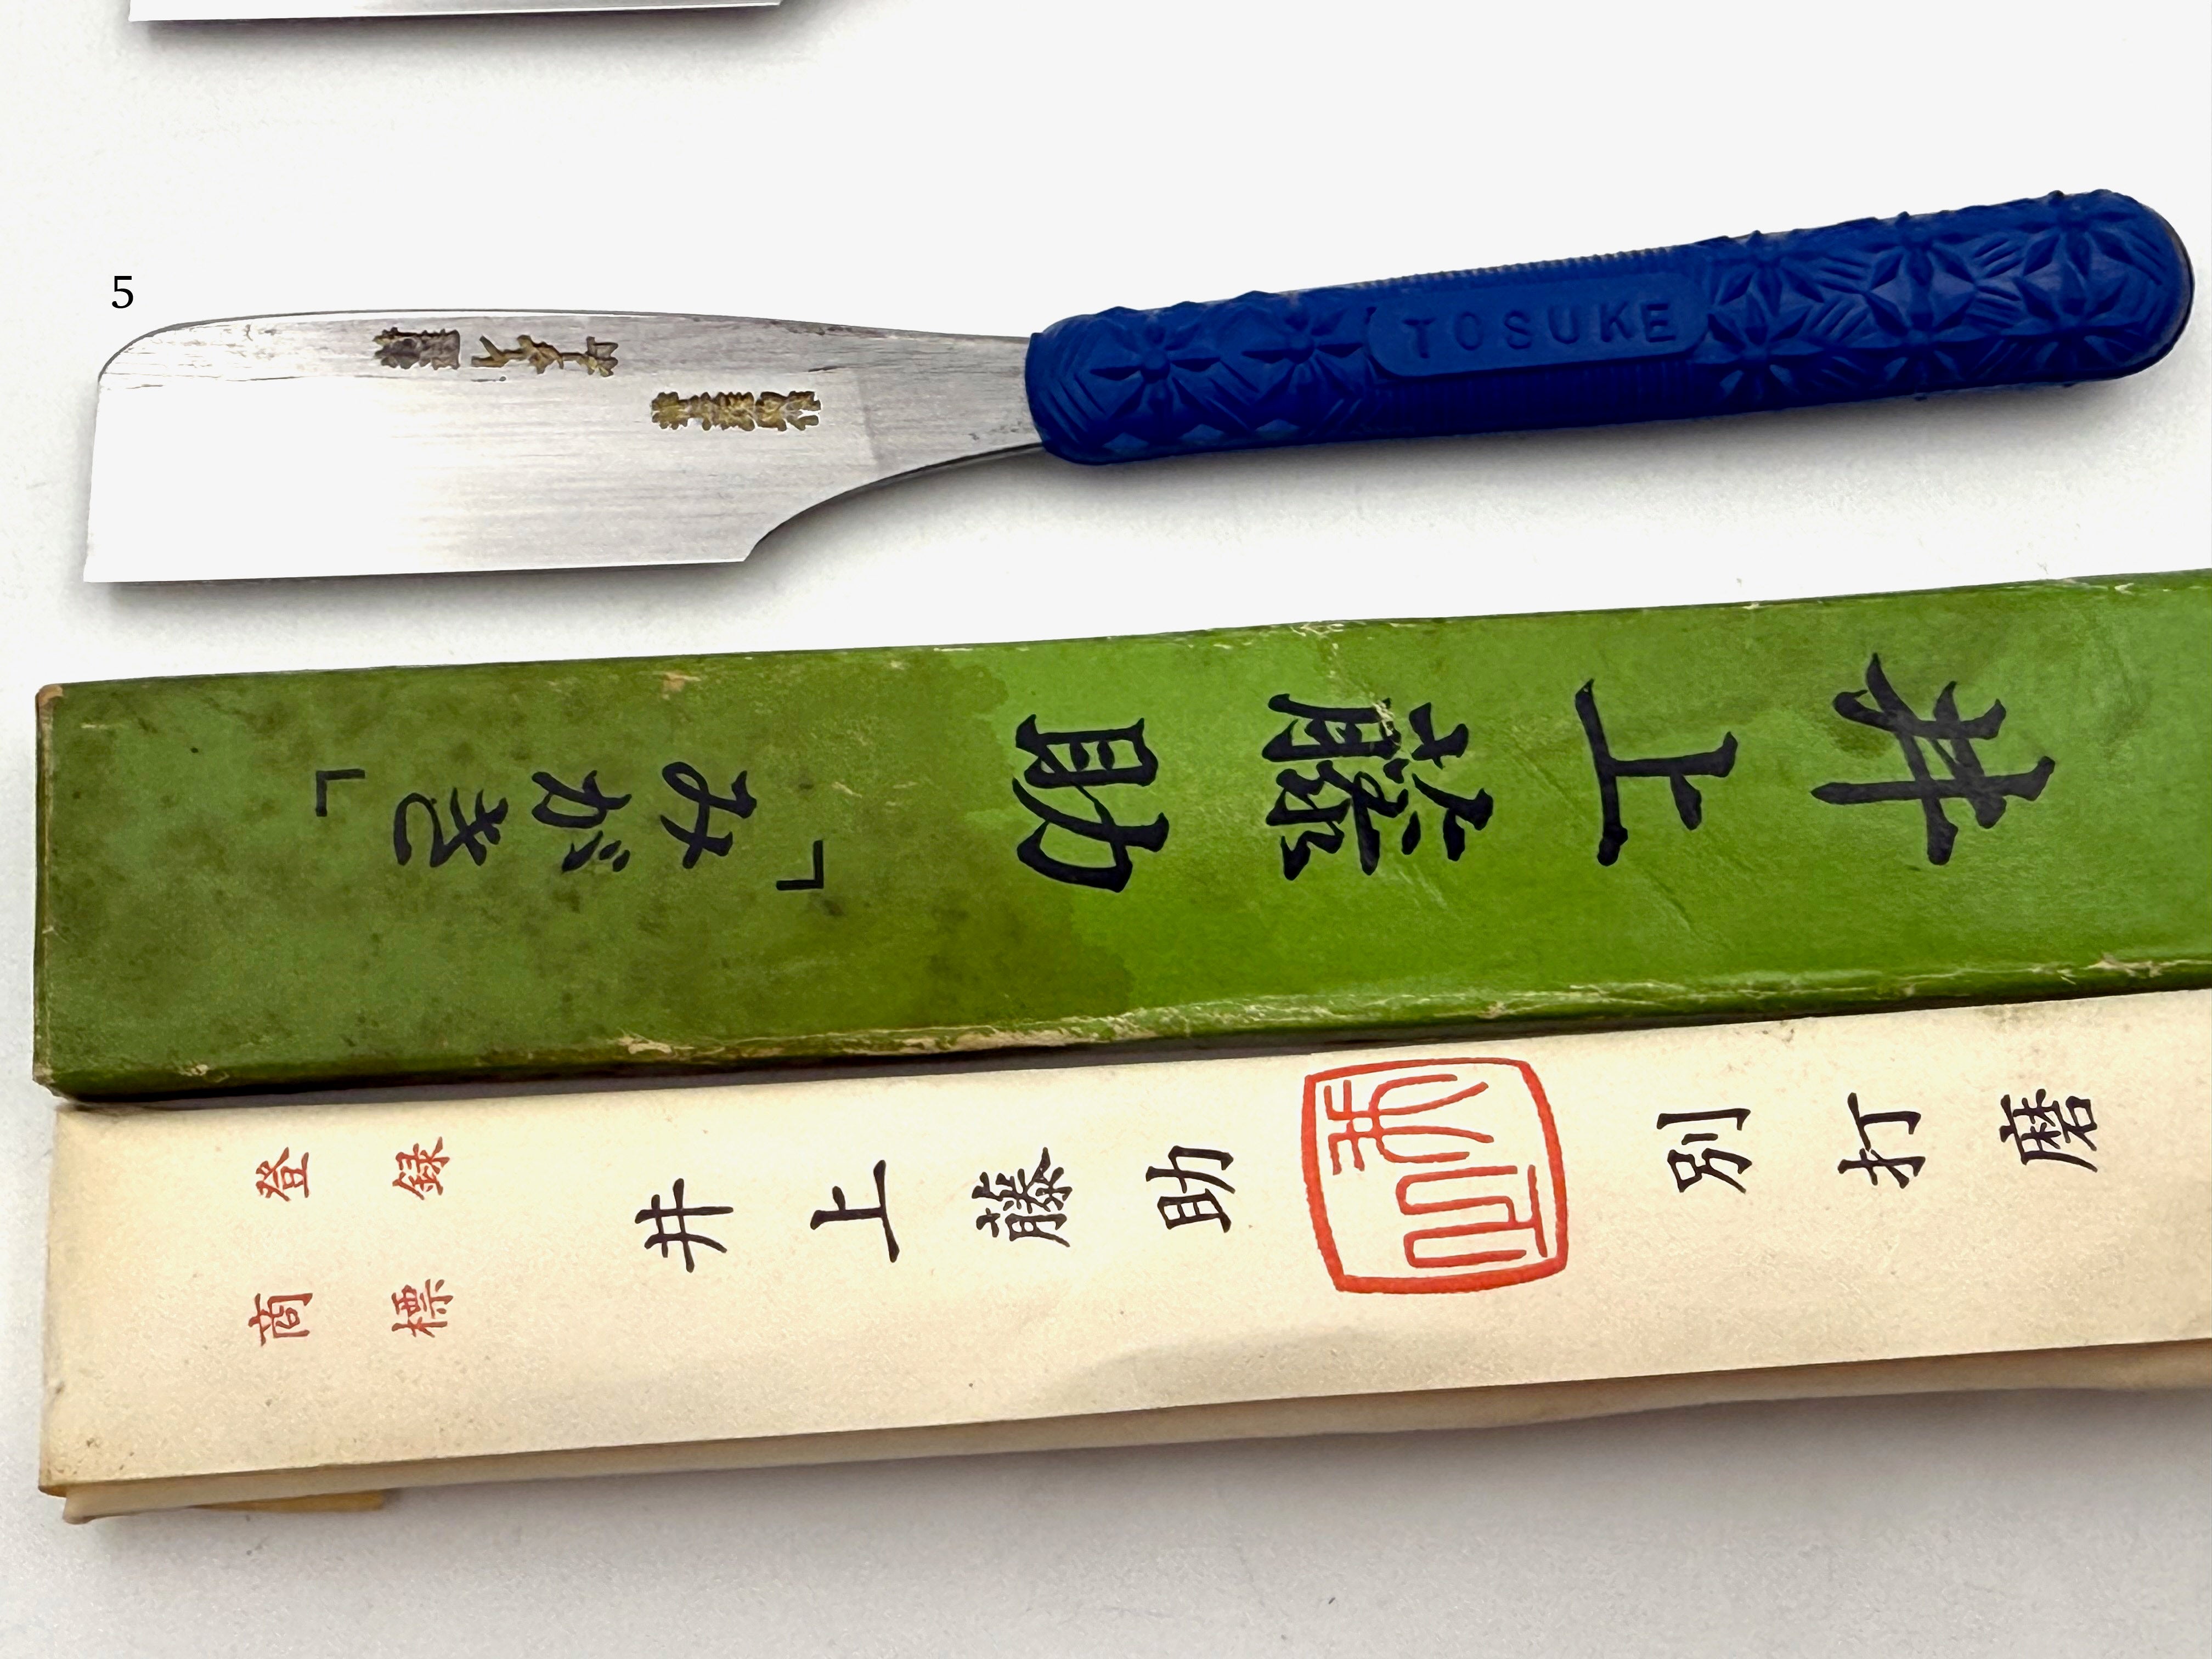 5
TOSUKE
井上藤助「みがき」
登録
商標
井上藤助
別打磨